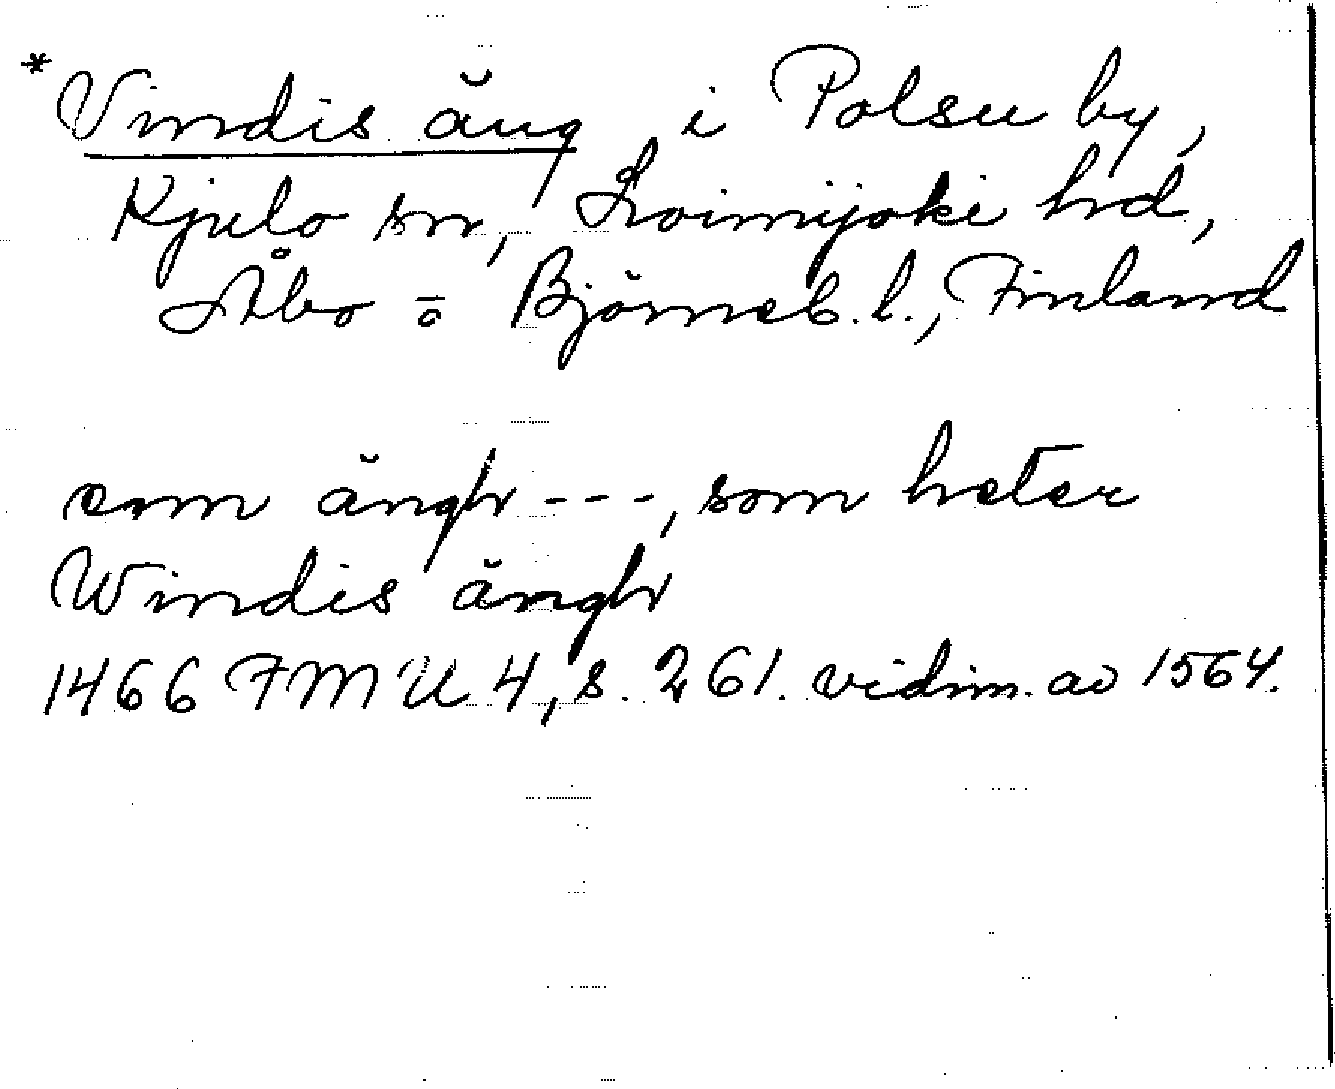 *Vindis äng i Polsu by,
Kjulo sn, Loimijoki hd,
Åbo = o Björneb. l., Finland
em ängh ---, som heter
Windis ängh
1466 FMU 4, s. 261. vidim. av 1564.